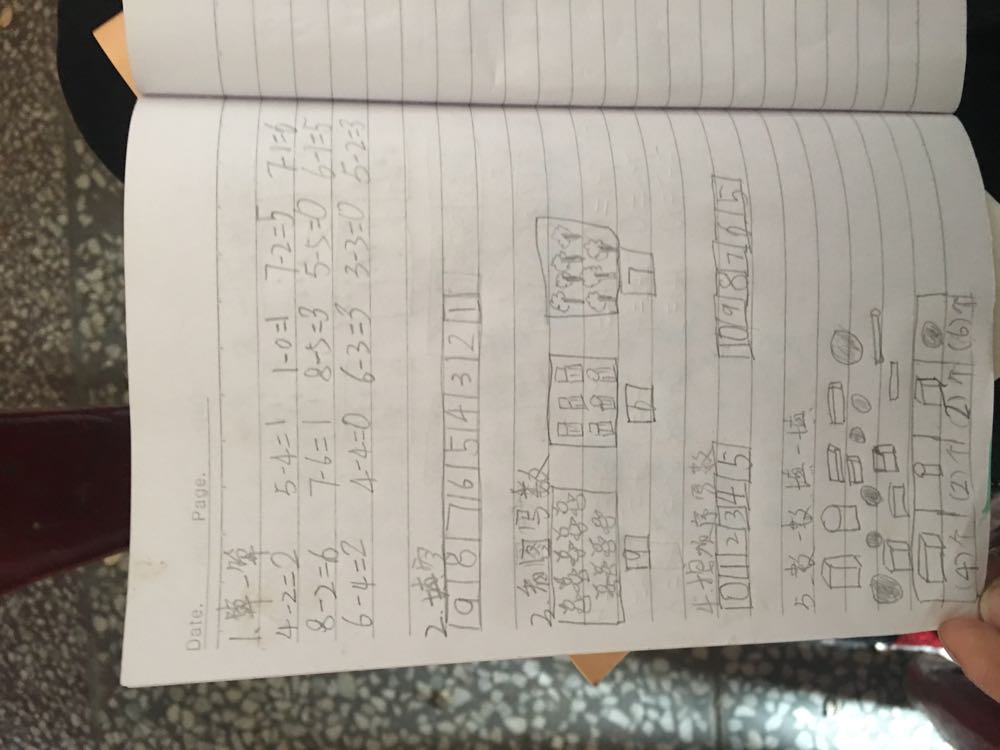 Date. Page.
1. 算一算
4-2=2 5-4=1 1-0=1 7-2=5 7-1=6
8-2=6 7-6=1 8-5=3 5-5=0 6-1=5
6-4=2 4-4=0 6-3=3 3-3=0 5-2=3
2. 填空
9 8 7 6 5 4 3 2 1
2. 看图写数
9 6 7
4. 按顺序写数
0 1 2 3 4 5 10 9 8 7 6 5
5. 数一数 填一填
(4)个 (2)个 (2)个 (6)个